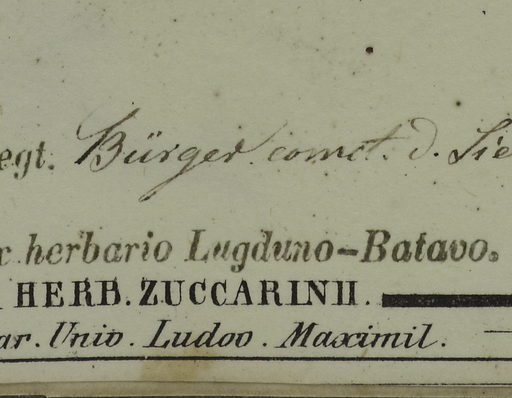 egt. Bürger comct. d. Sie
herbario Lugduno-Batavo.
HERB. ZUCCARINII.
ar. Univ. Ludov. Maximil.